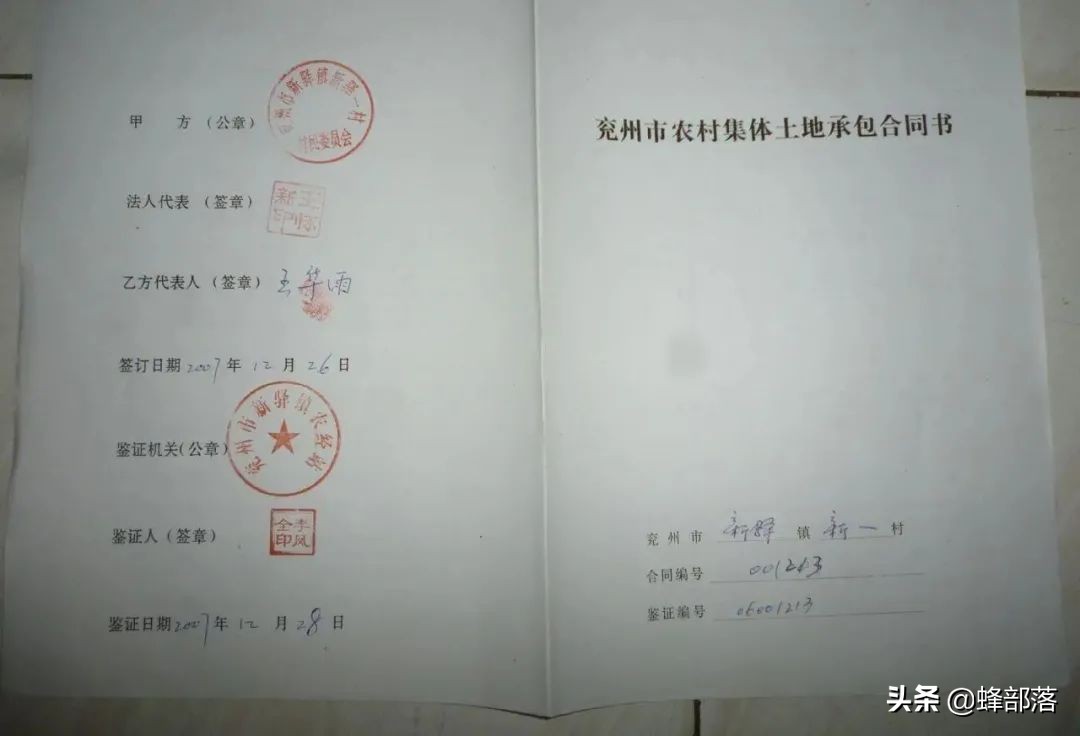 甲 方 (公章)
兖州市新驿镇新驿一村
村民委员会
法人代表 (签章)
乙方代表人 (签章) 王华雨
签订日期 2007 年 12 月 26 日
鉴证机关(公章)
兖州市新驿镇农经站
鉴证人 (签章)
李凤
全印
鉴证日期 2007 年 12 月 28 日
兖州市农村集体土地承包合同书
兖州市 新驿 镇 新一 村
合同编号 001213
鉴证编号 06001213
头条 @蜂部落